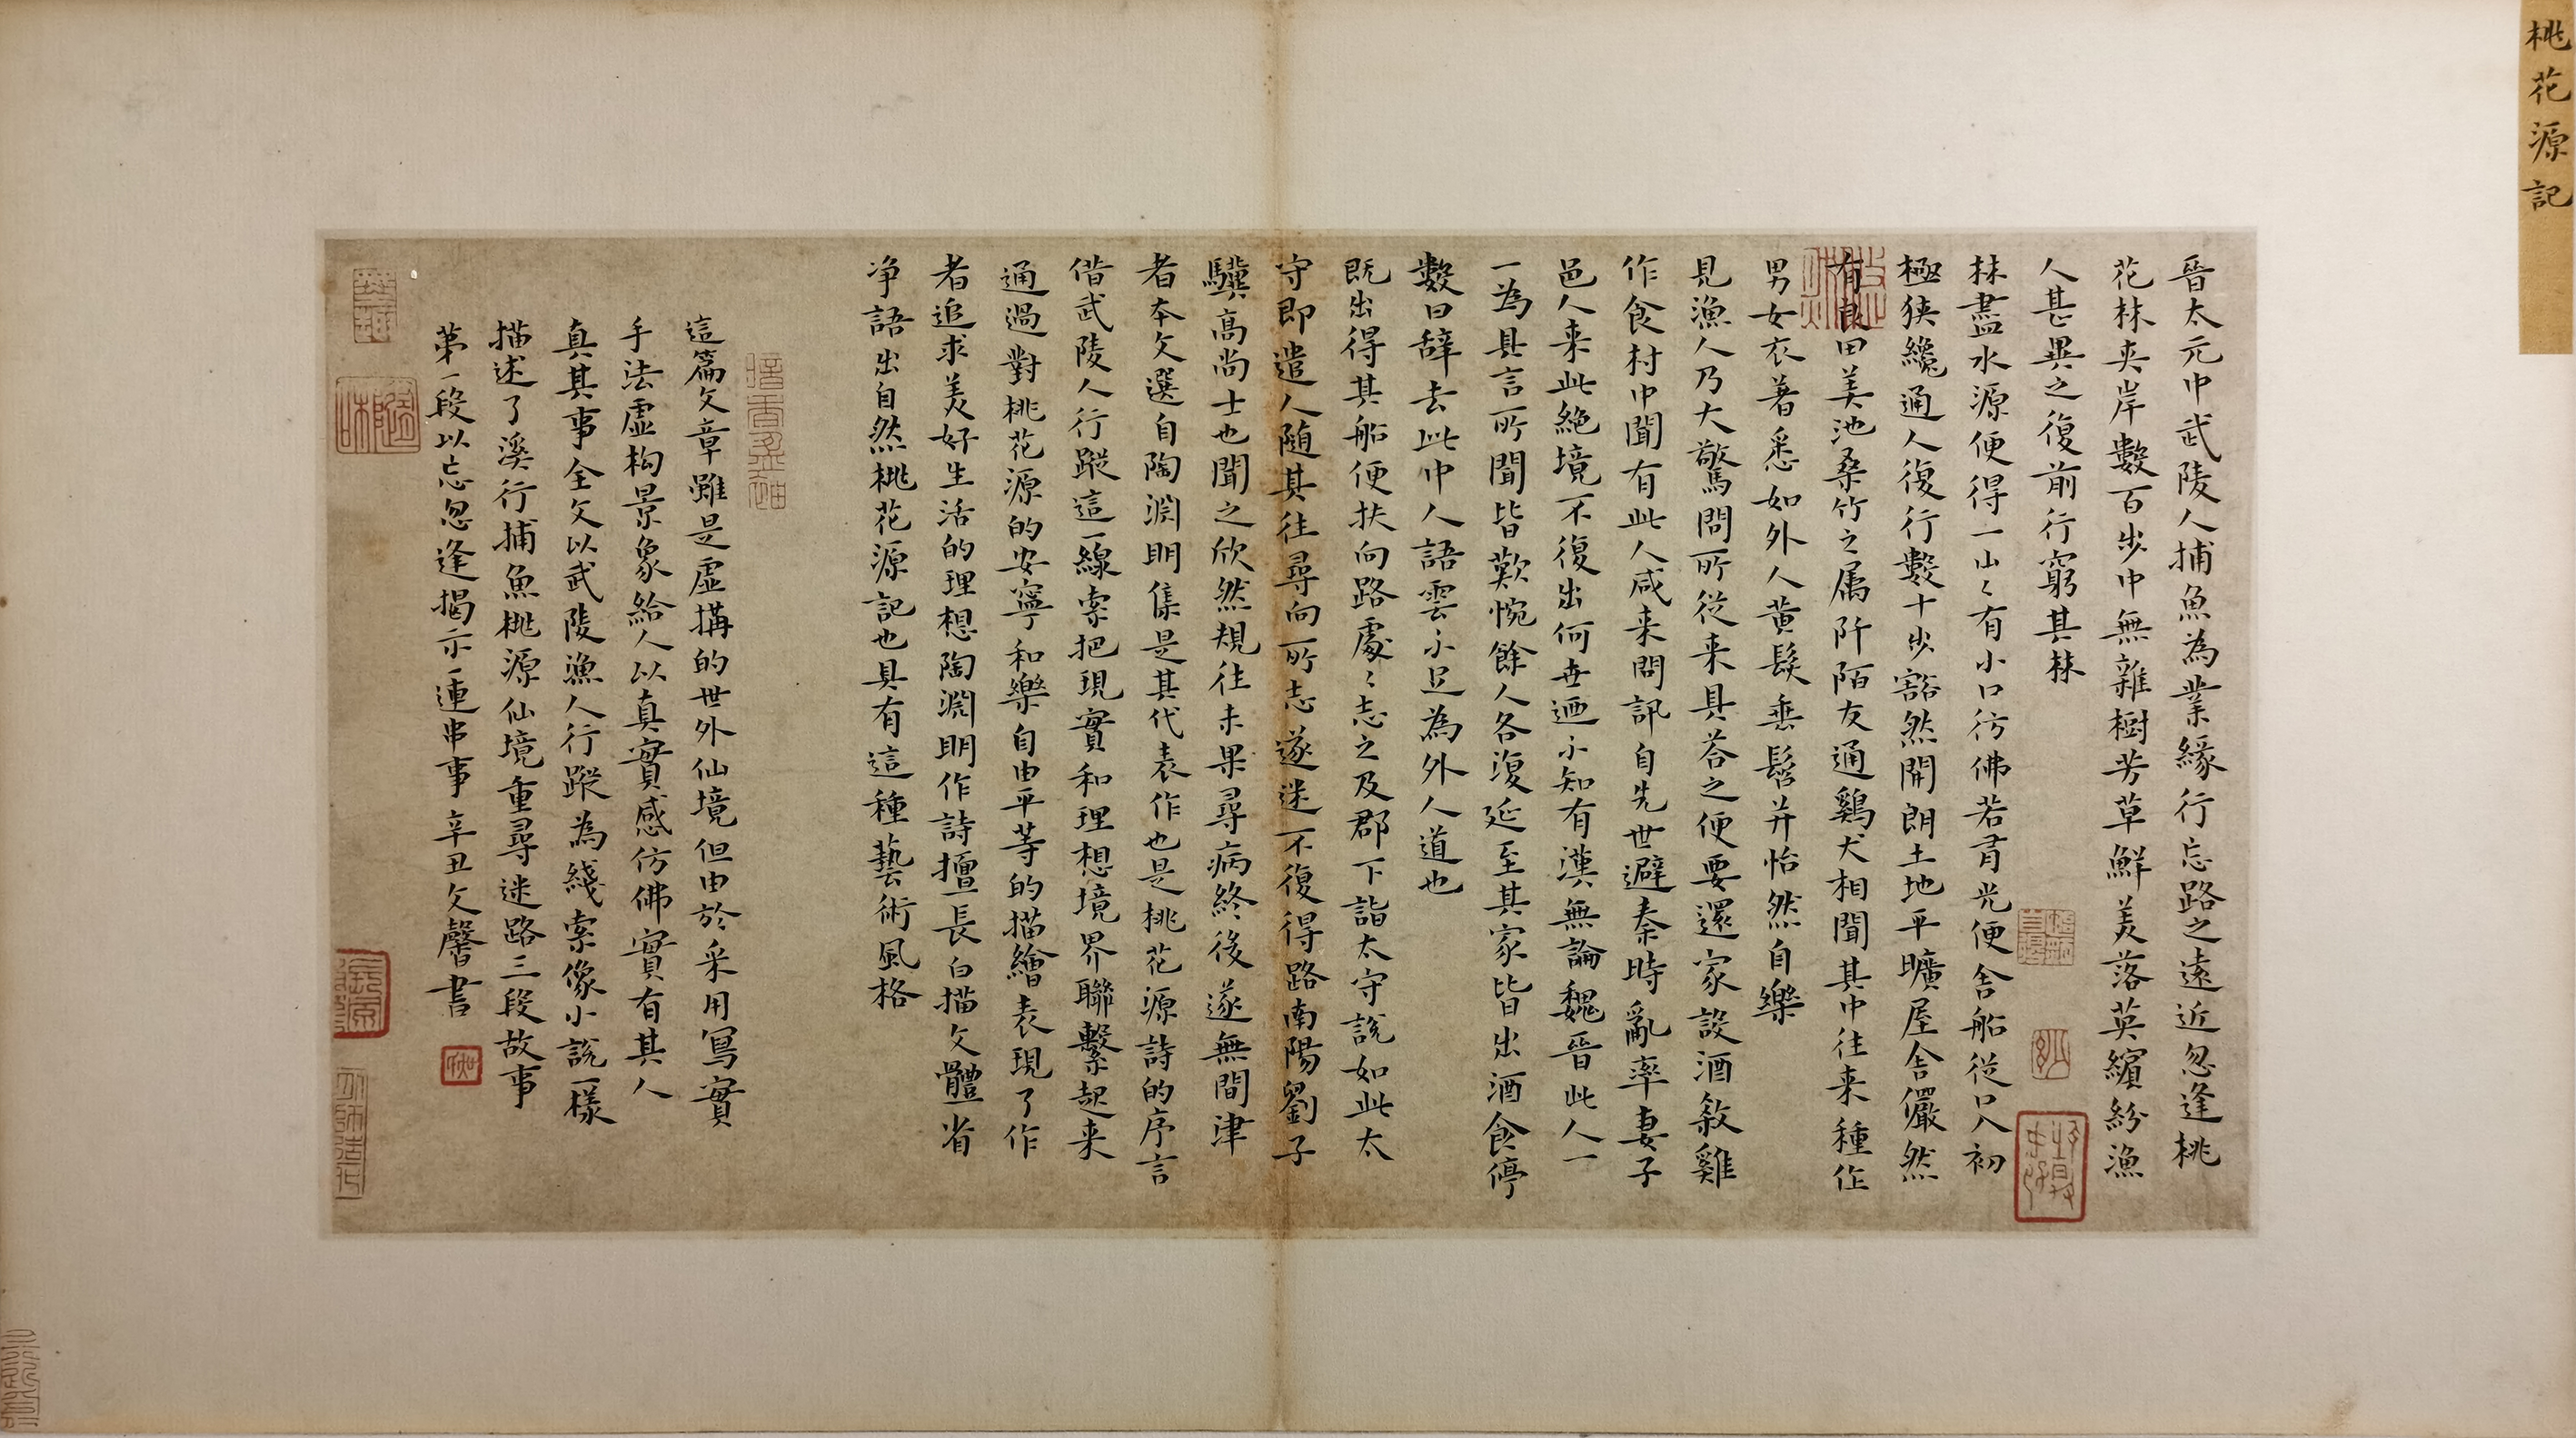 桃花源記
晉太元中武陵人捕魚為業緣行忘路之遠近忽逢桃
花林夹岸數百步中無雜樹芳草鮮美落英繽紛漁
人甚異之復前行窮其林
林盡水源便得一山〻有小口彷佛若有光便舍船從口入初
極狭纔通人復行數十步豁然開朗土地平曠屋舍儼然
有良田美池桑竹之属阡陌友通鷄犬相聞其中往来種作
男女衣著悉如外人黄髮垂髫并怡然自樂
見漁人乃大驚問所從来具荅之便要還家設酒敘雞
作食村中聞有此人咸来問訊自先世避秦時亂率妻子
邑人来此絶境不復出何世迺不知有漢無論魏晉此人一
一為具言所聞皆歎惋餘人各復延至其家皆出酒食停
數日辞去此中人語雲不足為外人道也
既出得其船便扶向路處〻志之及郡下詣太守說如此太
守即遣人随其往尋向所志遂迷不復得路南陽劉子
驥高尚士也聞之欣然規往未果尋病終後遂無問津
者夲文選自陶淵明集是其代表作也是桃花源詩的序言
借武陵人行蹤這一線索把現實和理想境界聯繫起来
通過對桃花源的安寧和樂自由平等的描繪表現了作
者追求美好生活的理想陶淵明作詩擅長白描文體省
净語出自然桃花源記也具有這種藝術風格
這篇文章雖是虚搆的世外仙境但由於采用寫實
手法虚构景象給人以真實感仿佛實有其人
真其事全文以武陵漁人行蹤為綫索像小說一樣
描述了溪行捕魚桃源仙境重尋迷路三段故事
第一段以忘忽逢揭示一連串事 辛丑文馨書